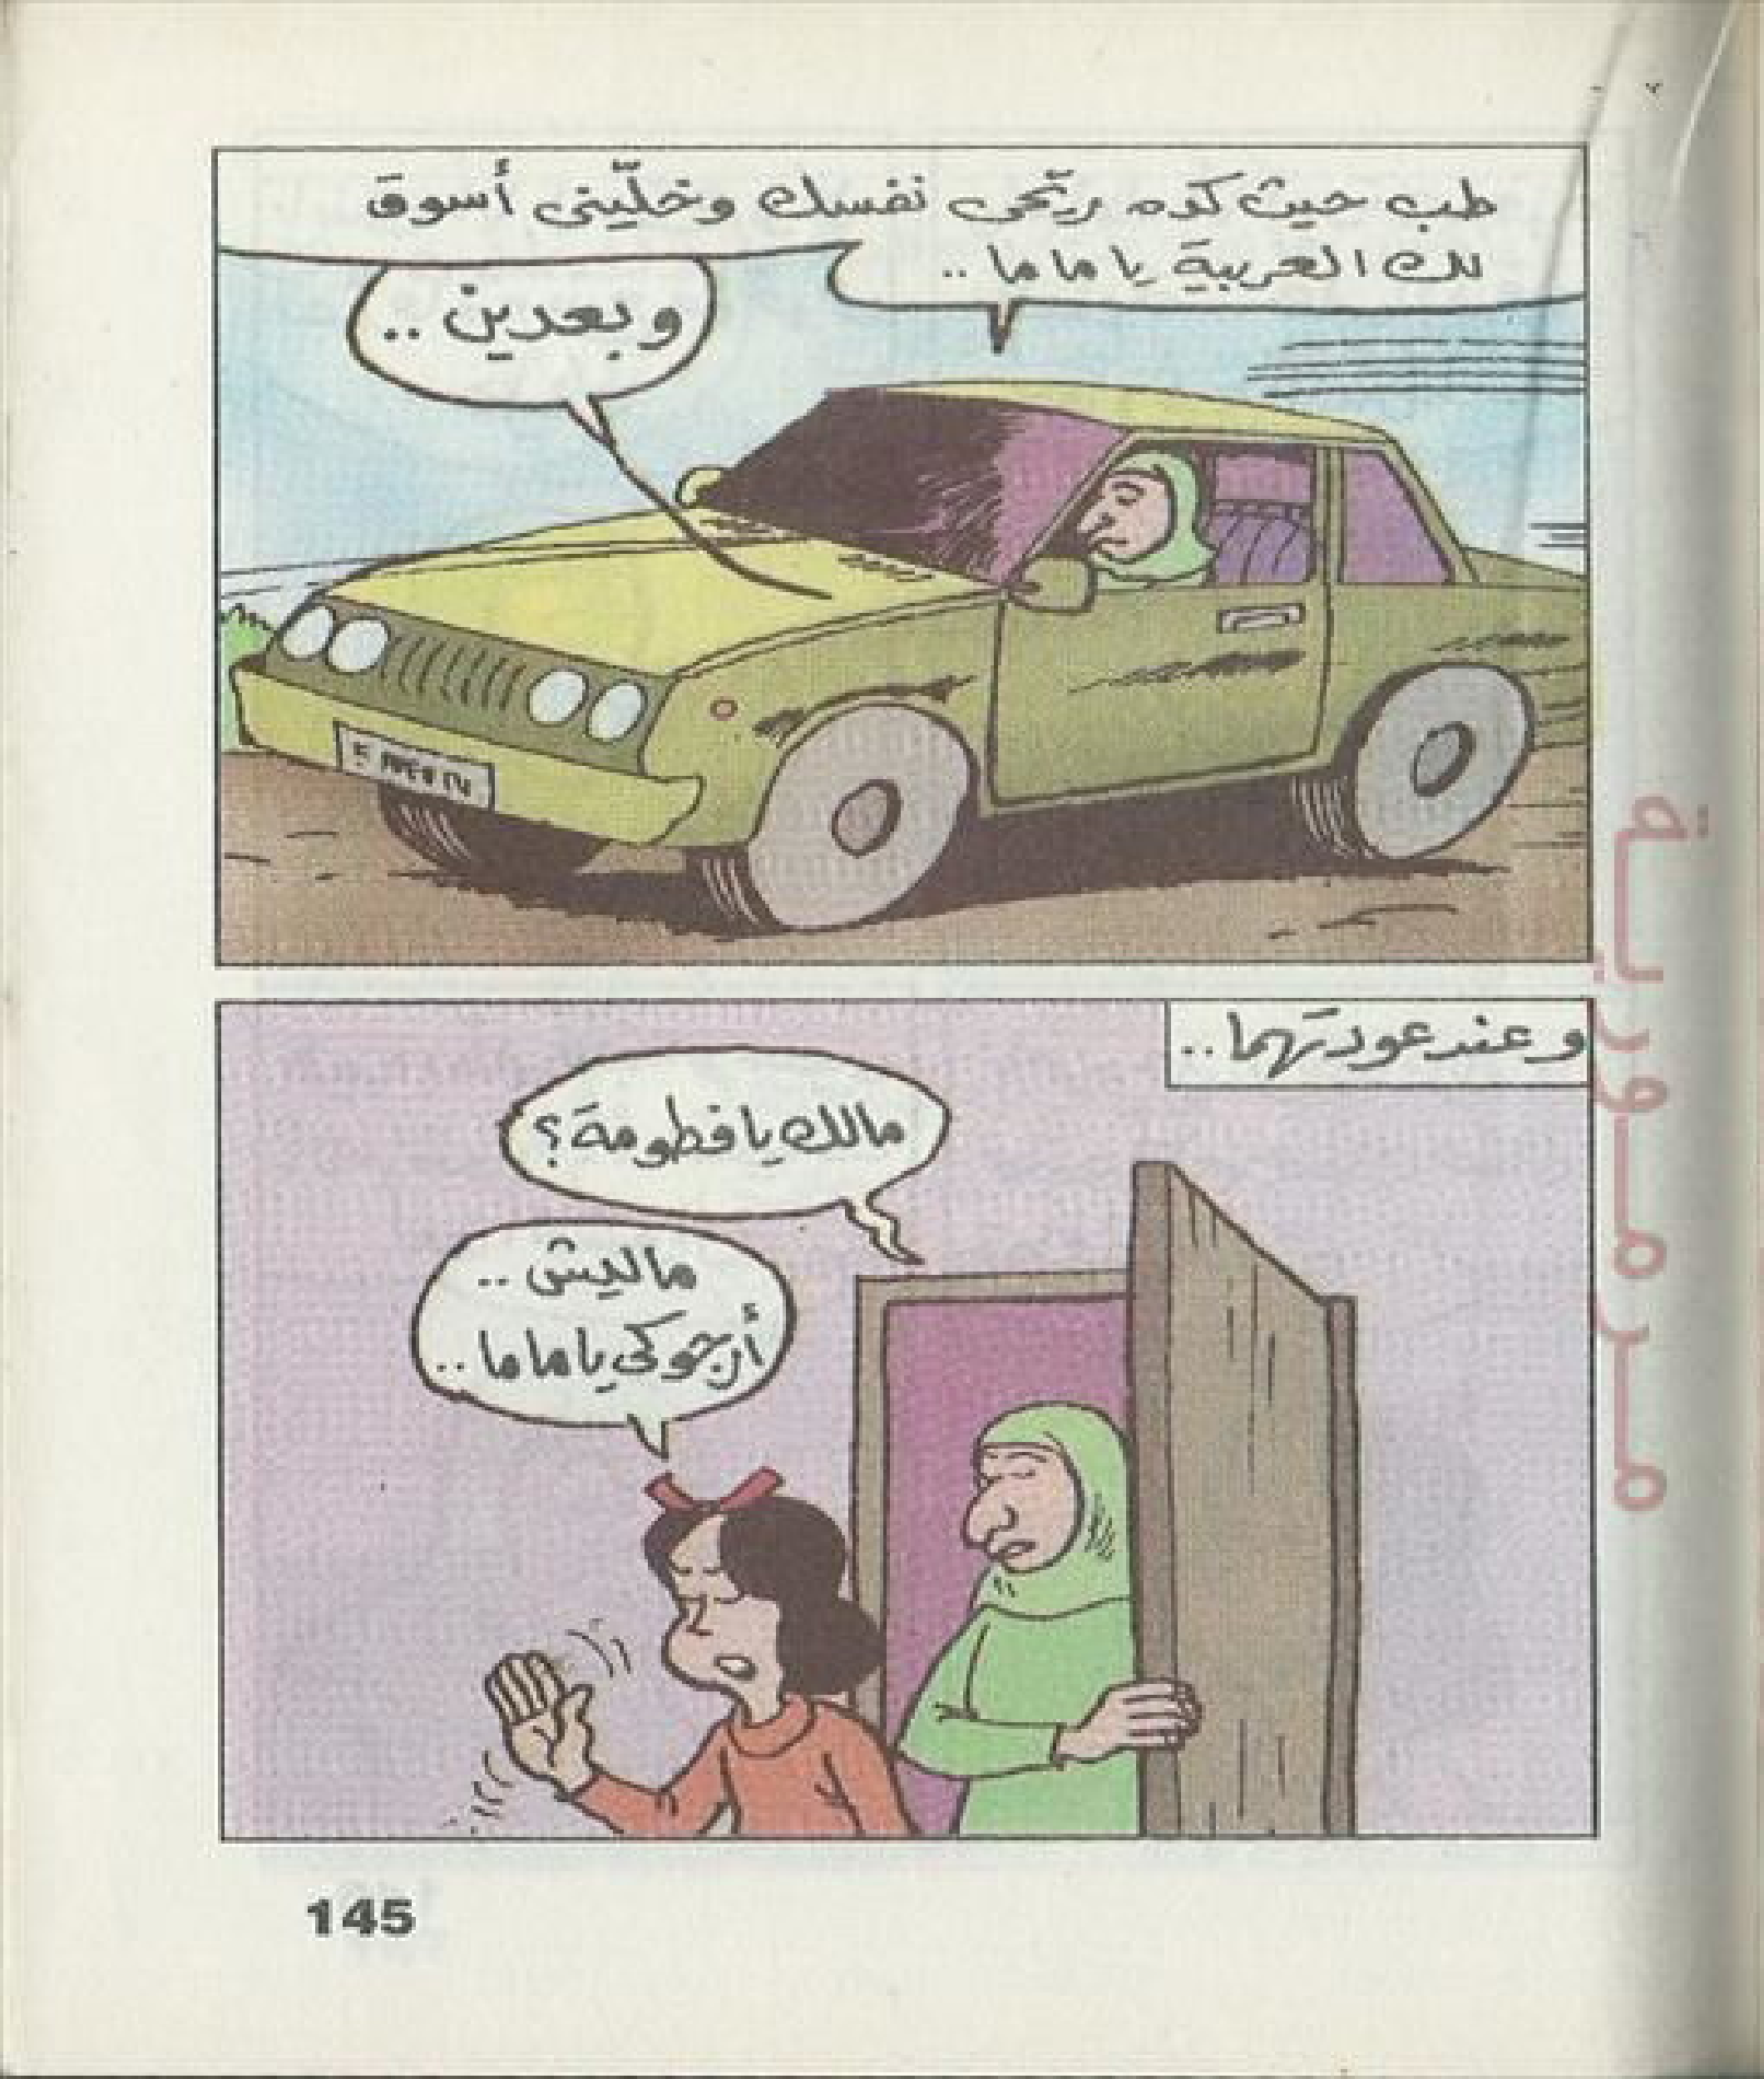 طب حيث كده ريّحى نفسك وخلّينى أسوق
لك العربية يا ماما ..
وبعدين ..
وعند عودتهما ..
مالك يا فطومة ؟
ماليش ..
أرجوكى يا ماما ..
145
مرمورية